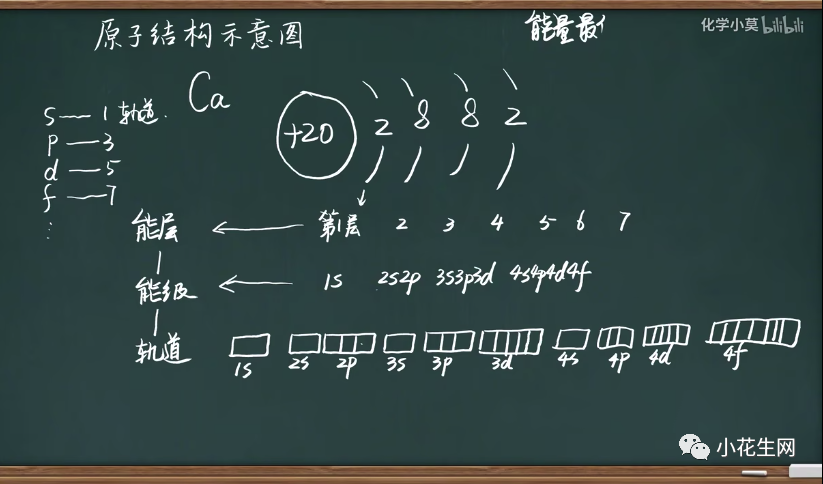 原子结构示意图
能量最亻
化学小莫 bilibili
Ca
+20 2 8 8 2
s — 1 轨道.
p — 3
d — 5
f — 7
⋮
能层 ← 第1层 2 3 4 5 6 7
能级 ← 1s 2s2p 3s3p3d 4s4p4d4f
轨道
1s 2s 2p 3s 3p 3d 4s 4p 4d 4f
小花生网